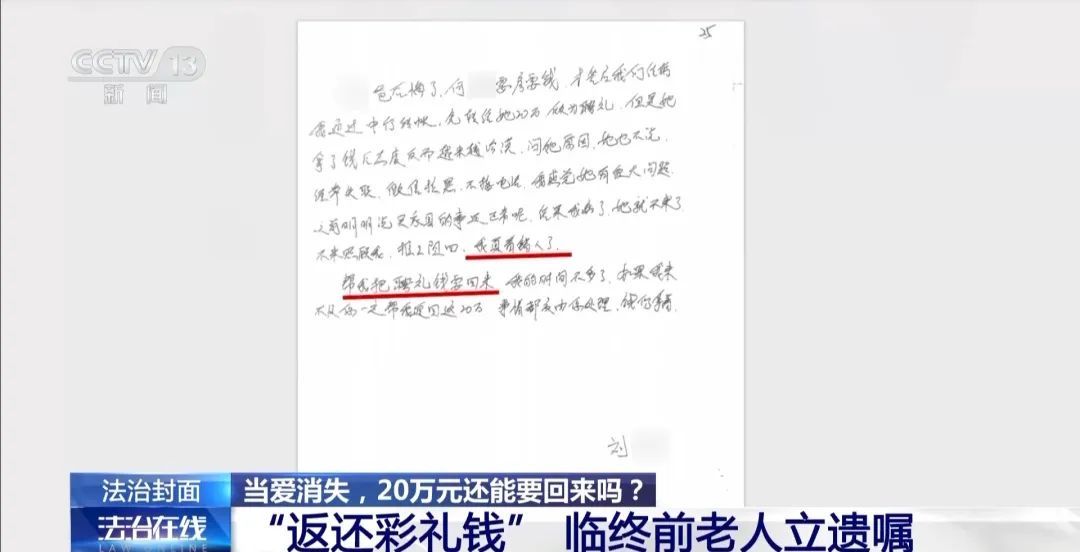 CCTV 13
新闻
25
爸在悔了,何 要彦要钱,
我通过中行转帐,先转给她20万 做为聘礼,但是她
拿了钱后态度反而越来越冷漠,问她原因,她也不说,
经常失联,微信拉黑,不接电话,我感觉她有很大问题,
之前明明说买家具的事还正常呢,结果我病了,她就不来了
不来照顾我,推三阻四,我真看错人了。
帮我把聘礼钱要回来 我的时间不多了,如果我来
不及你一定帮我要回这20万 事情都交由你处理,
刘
法治封面
当爱消失,20万元还能要回来吗?
法治在线
LAW ONLINE
“返还彩礼钱” 临终前老人立遗嘱